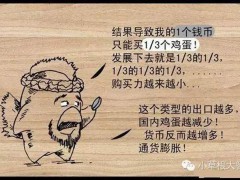 结果导致我的1个钱币
只能买1/3个鸡蛋！
发展下去就是1/3的1/3，
1/3的1/3的1/3……，
购买力越来越小…
这个类型的出口越多，
国内鸡蛋越减少！
货币反而越增多！
通货膨胀！